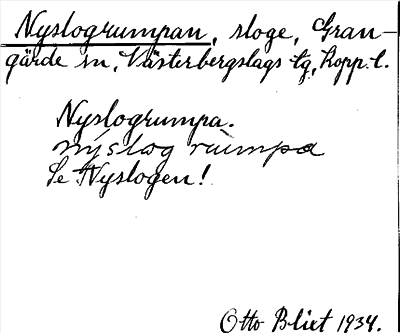 Nyslogrumpan, sloge, Gran-
gärde sn, Västerbergslags tg, Kopp. l.
Nyslogrumpa.
nýslog rumpa
Se Nyslogen!
Otto Blixt 1934.